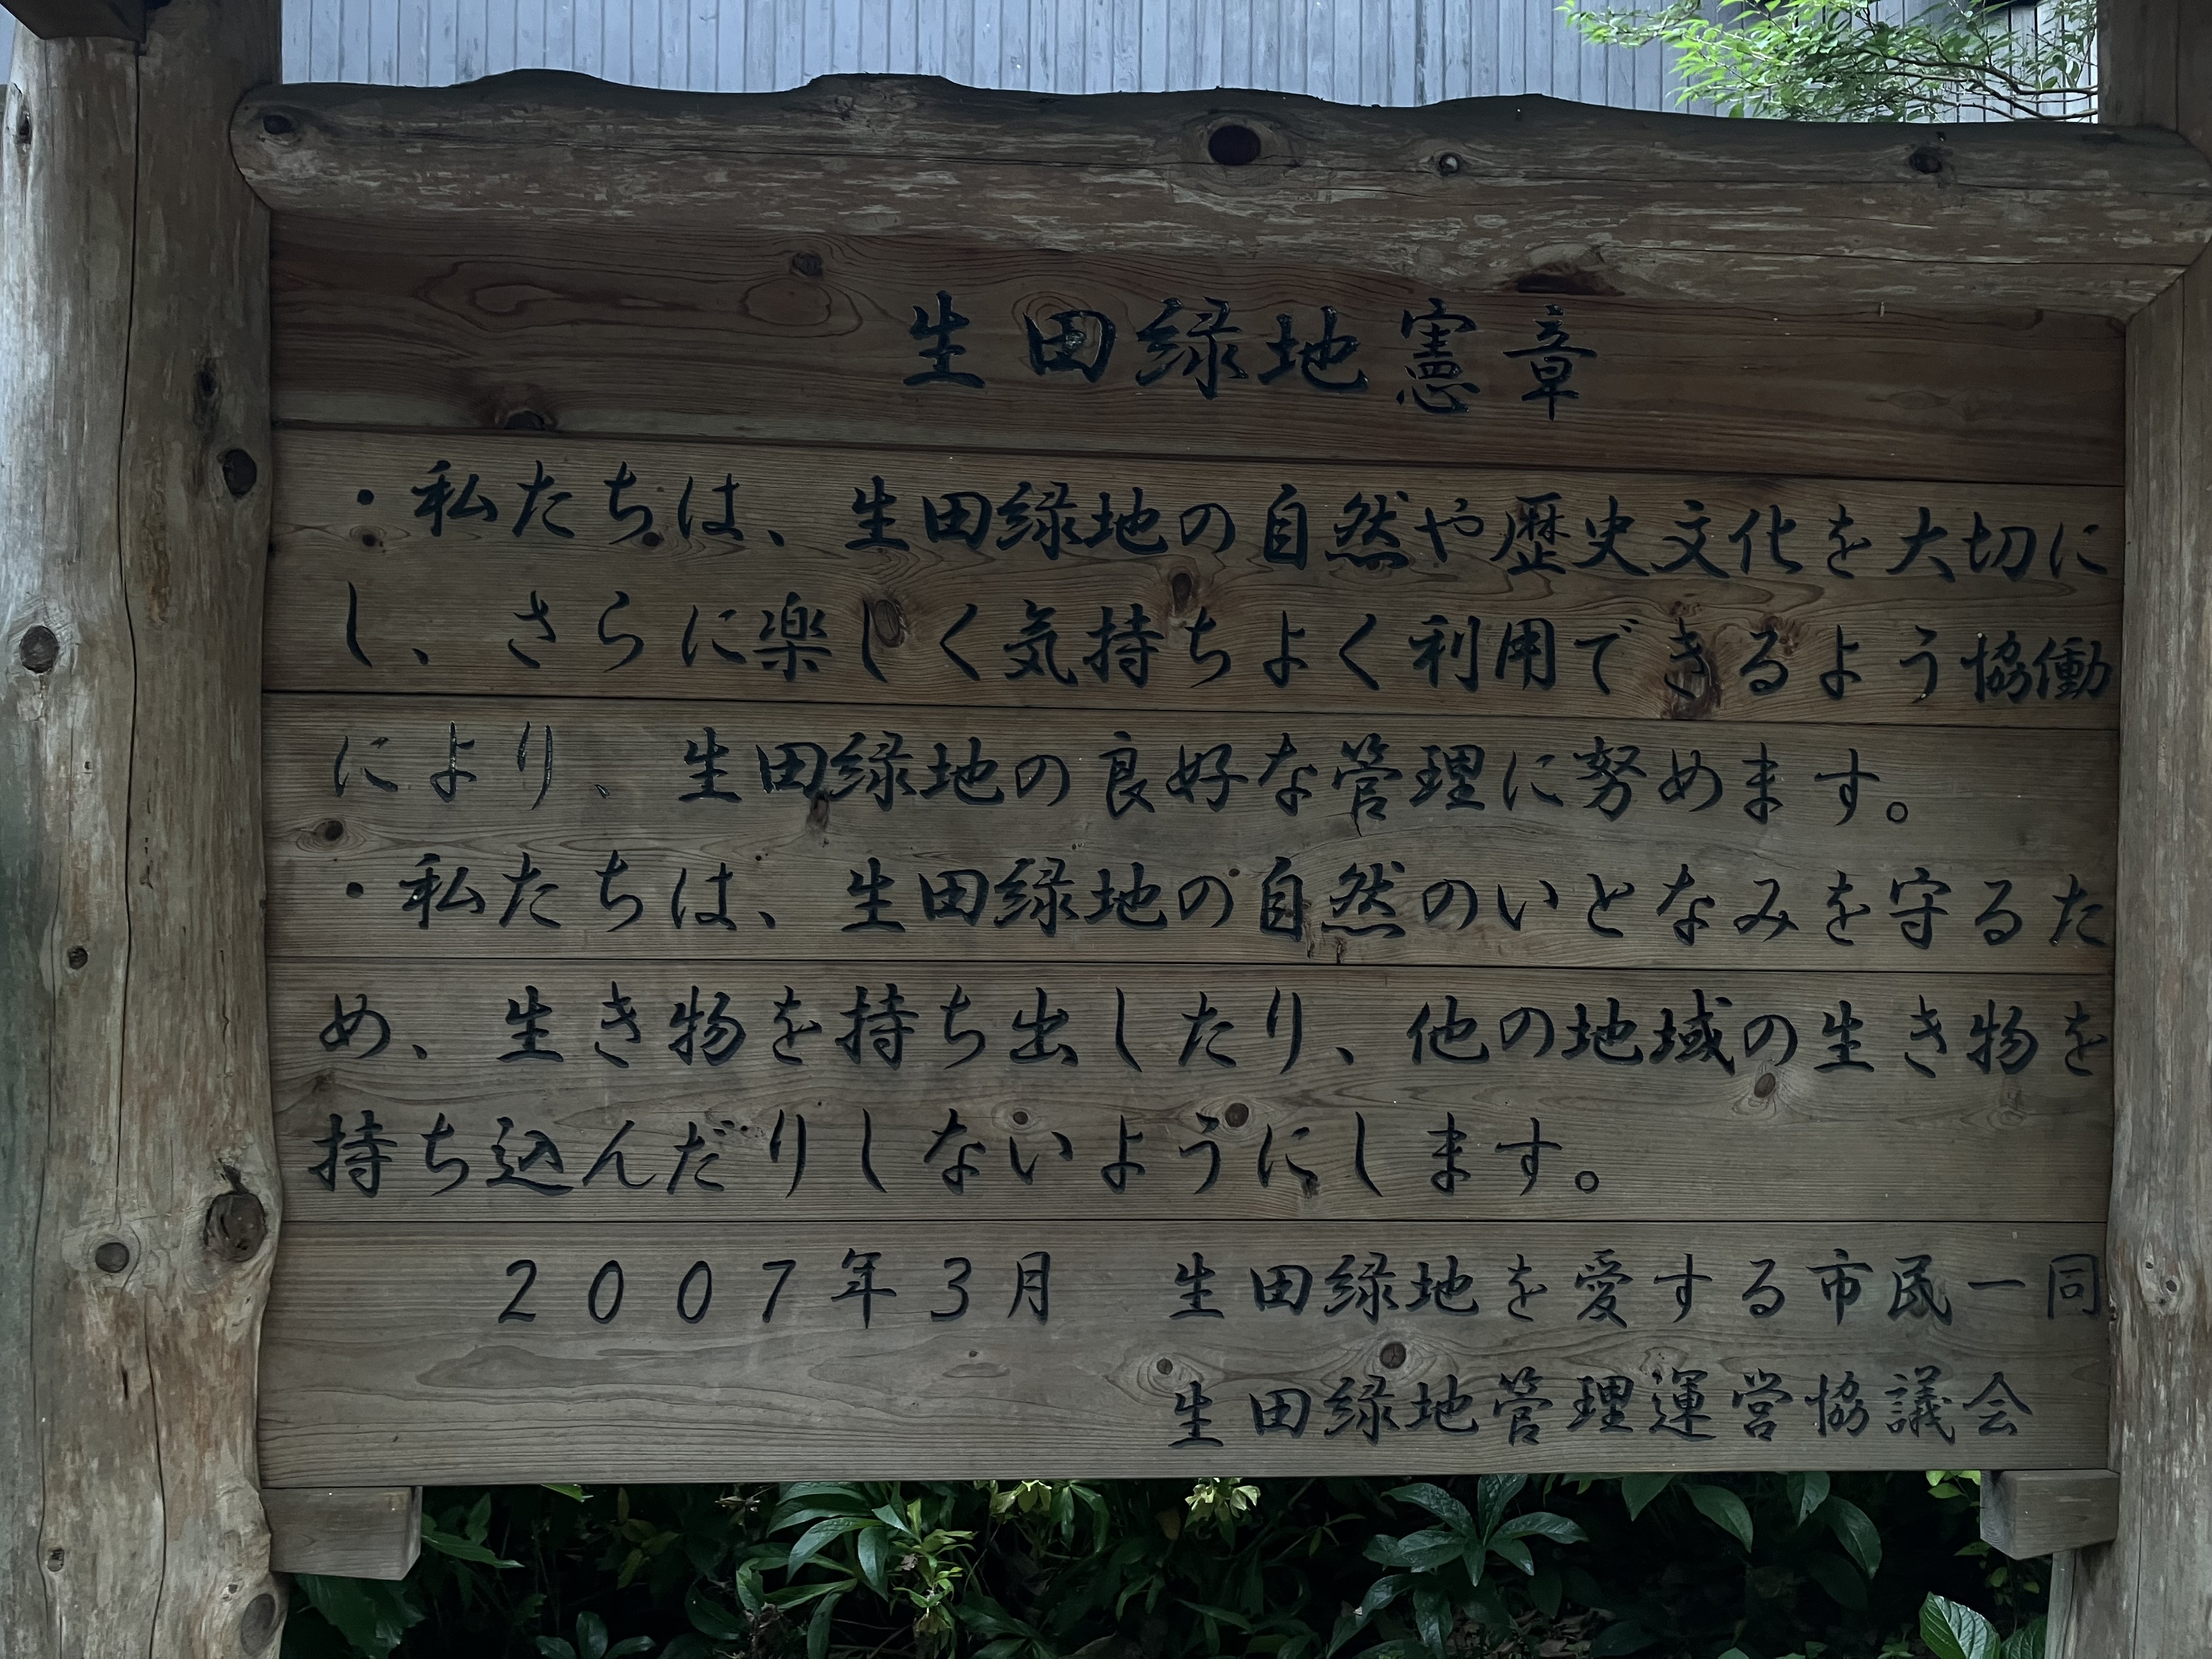 生田緑地憲章
・私たちは、生田緑地の自然や歴史文化を大切に
し、さらに楽しく気持ちよく利用できるよう協働
により、生田緑地の良好な管理に努めます。
・私たちは、生田緑地の自然のいとなみを守るた
め、生き物を持ち出したり、他の地域の生き物を
持ち込んだりしないようにします。
２００７年３月　生田緑地を愛する市民一同
生田緑地管理運営協議会